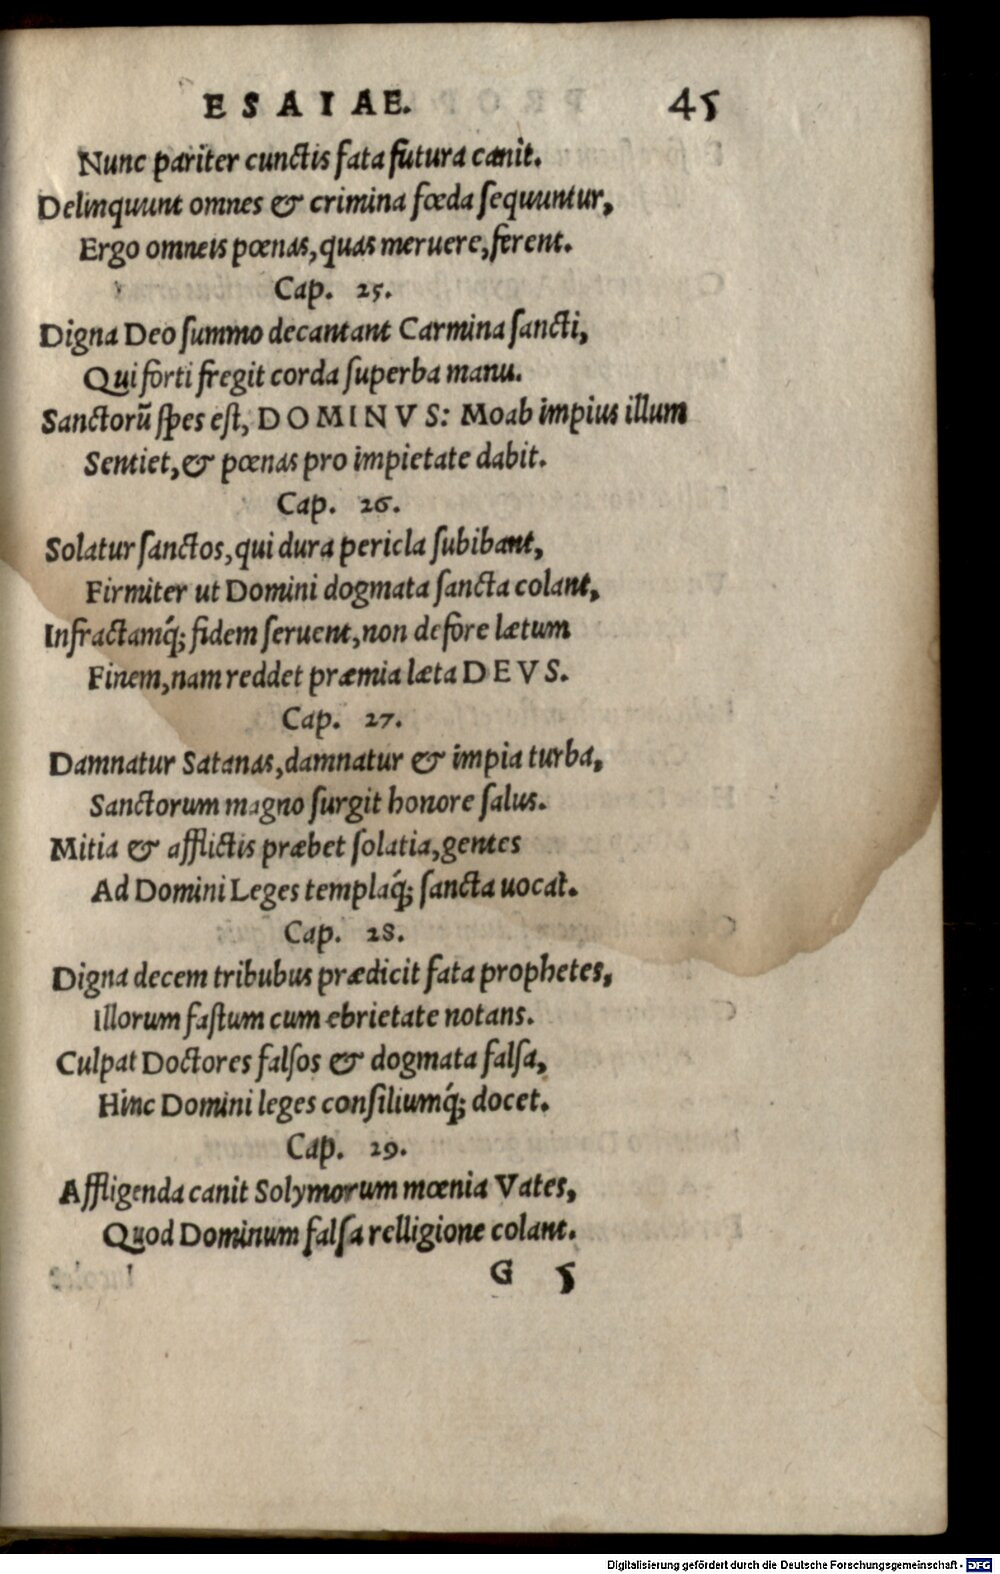 ESAIAE. 45
Nunc pariter cunctis fata futura canit.
Delinquunt omnes & crimina fœda sequuntur,
Ergo omneis pœnas, quas meruere, ferent.
Cap. 25.
Digna Deo summo decantant Carmina sancti,
Qui forti fregit corda superba manu.
Sanctorū spes est, DOMINVS: Moab impius illum
Sentiet, & pœnas pro impietate dabit.
Cap. 26.
Solatur sanctos, qui dura pericla subibant,
Firmiter ut Domini dogmata sancta colant,
Infractamq́; fidem seruent, non defore lætum
Finem, nam reddet præmia læta DEVS.
Cap. 27.
Damnatur Satanas, damnatur & impia turba,
Sanctorum magno surgit honore salus.
Mitia & afflictis præbet solatia, gentes
Ad Domini Leges templaq́; sancta uocat.
Cap. 28.
Digna decem tribubus prædicit fata prophetes,
Illorum fastum cum ebrietate notans.
Culpat Doctores falsos & dogmata falsa,
Hinc Domini leges consiliumq́; docet.
Cap. 29.
Affligenda canit Solymorum mœnia Vates,
Quod Dominum falsa relligione colant.
G 5
Digitalisierung gefördert durch die Deutsche Forschungsgemeinschaft - DFG